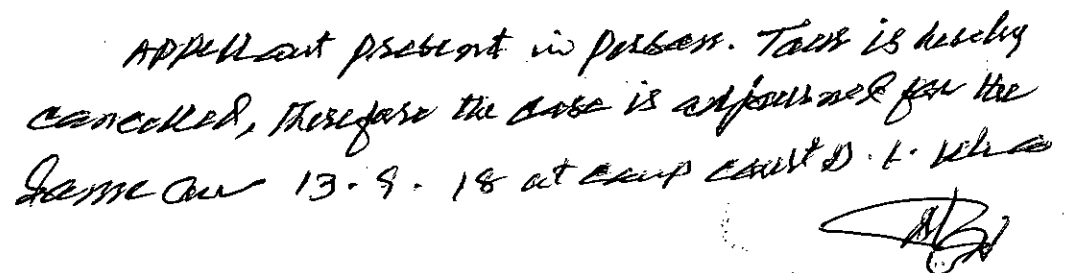 Appellant present in person. Tour is hereby
cancelled, therefore the case is adjourned for the
same on 13.9.18 at camp court D.I. Khan